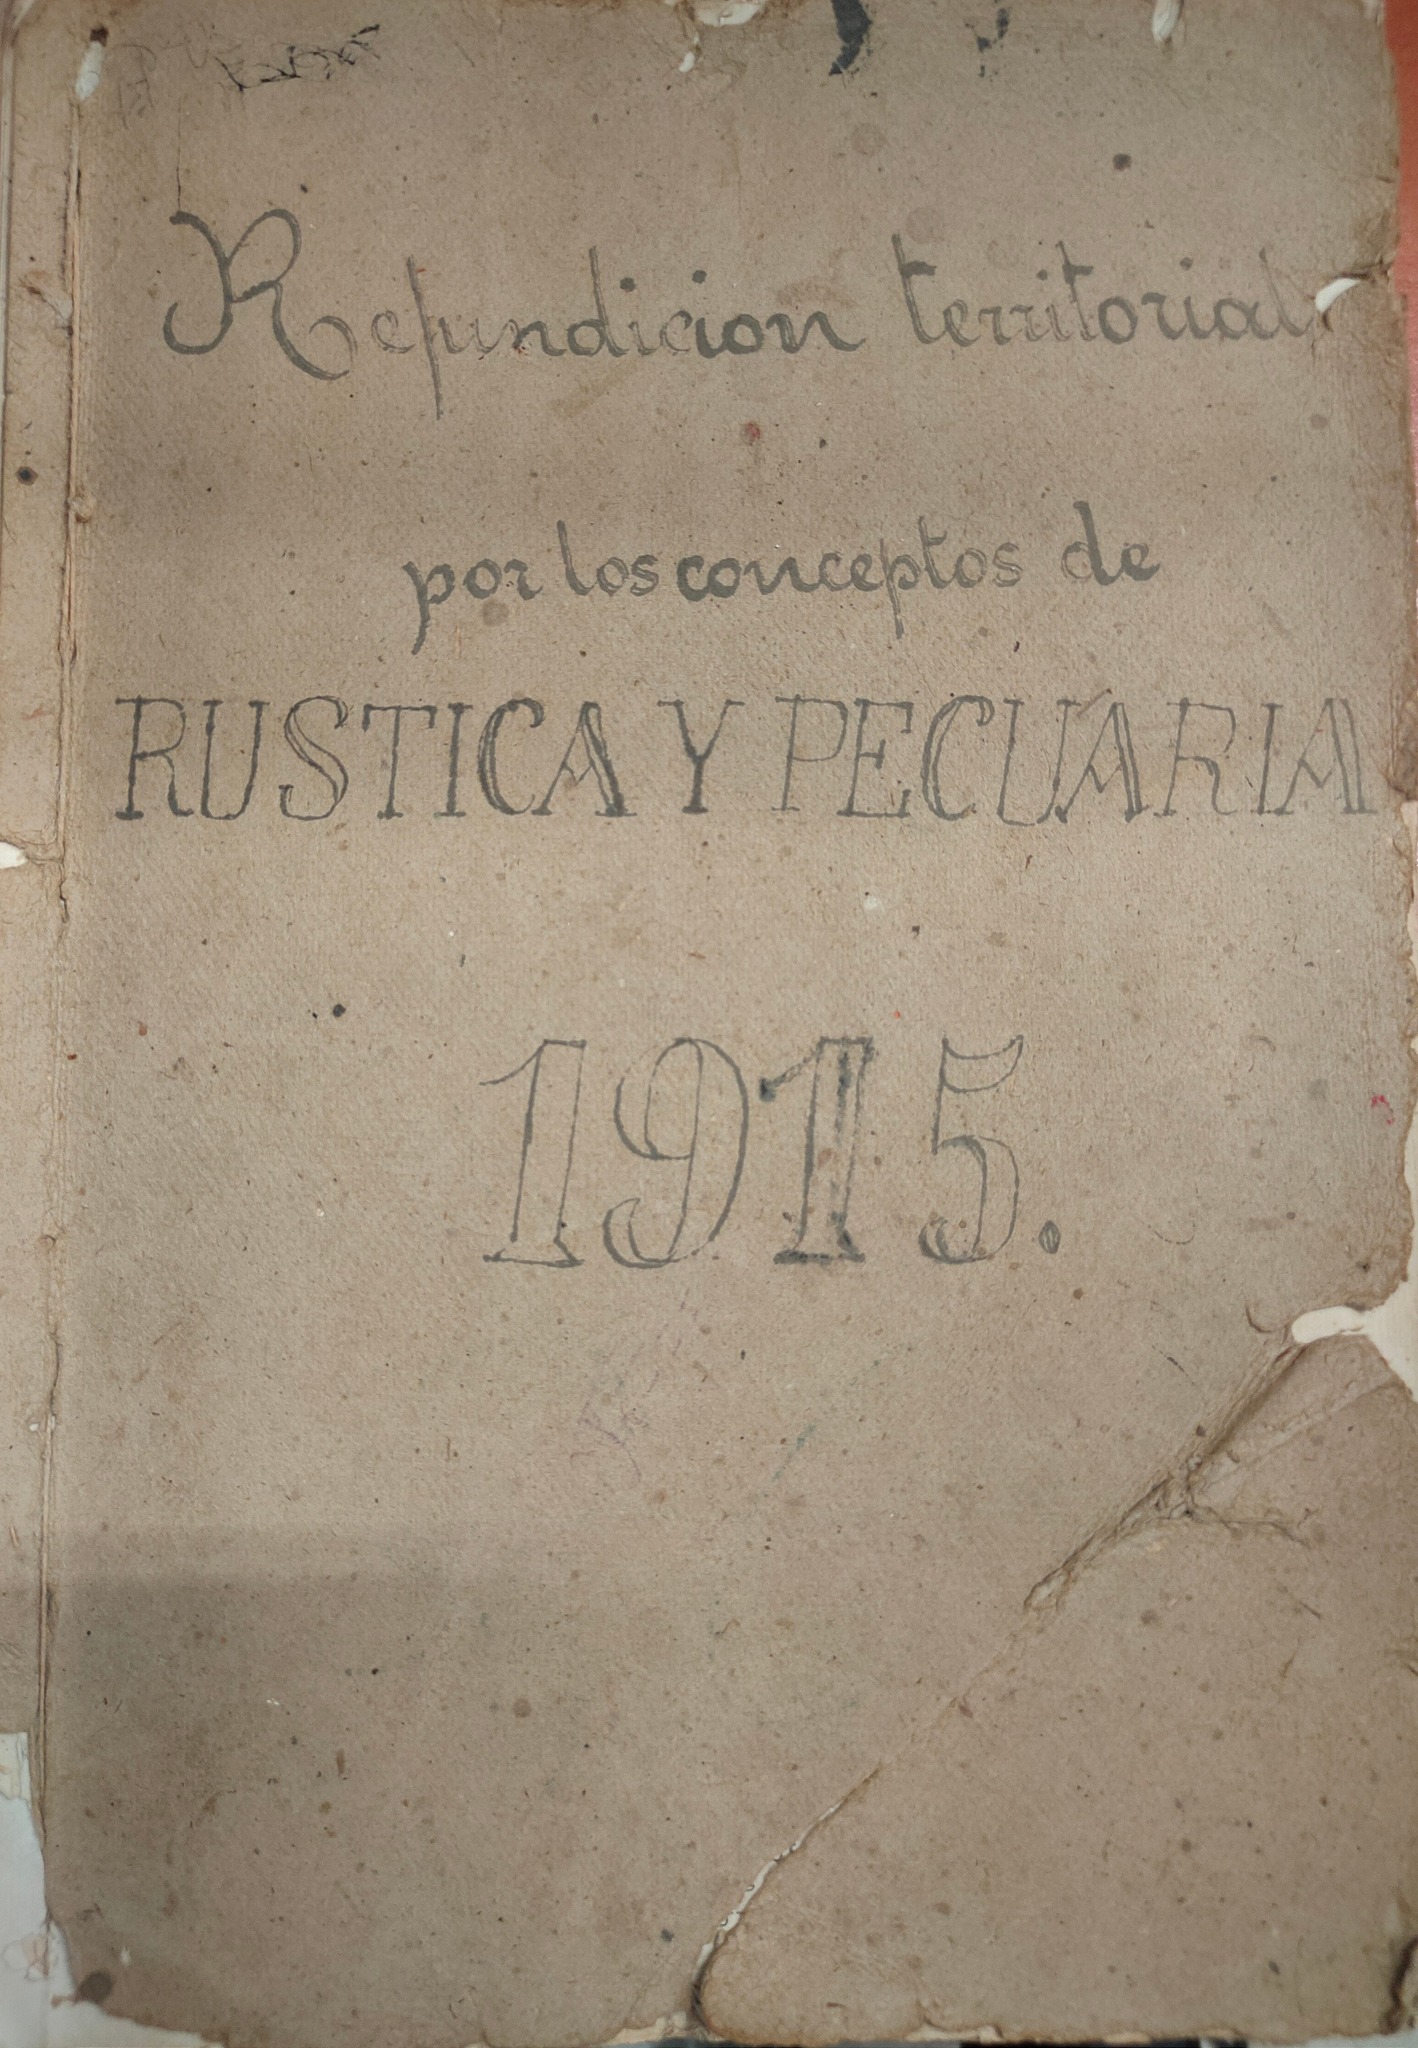 Refundicion territorial
por los conceptos de
RUSTICA Y PECUARIA
1915.